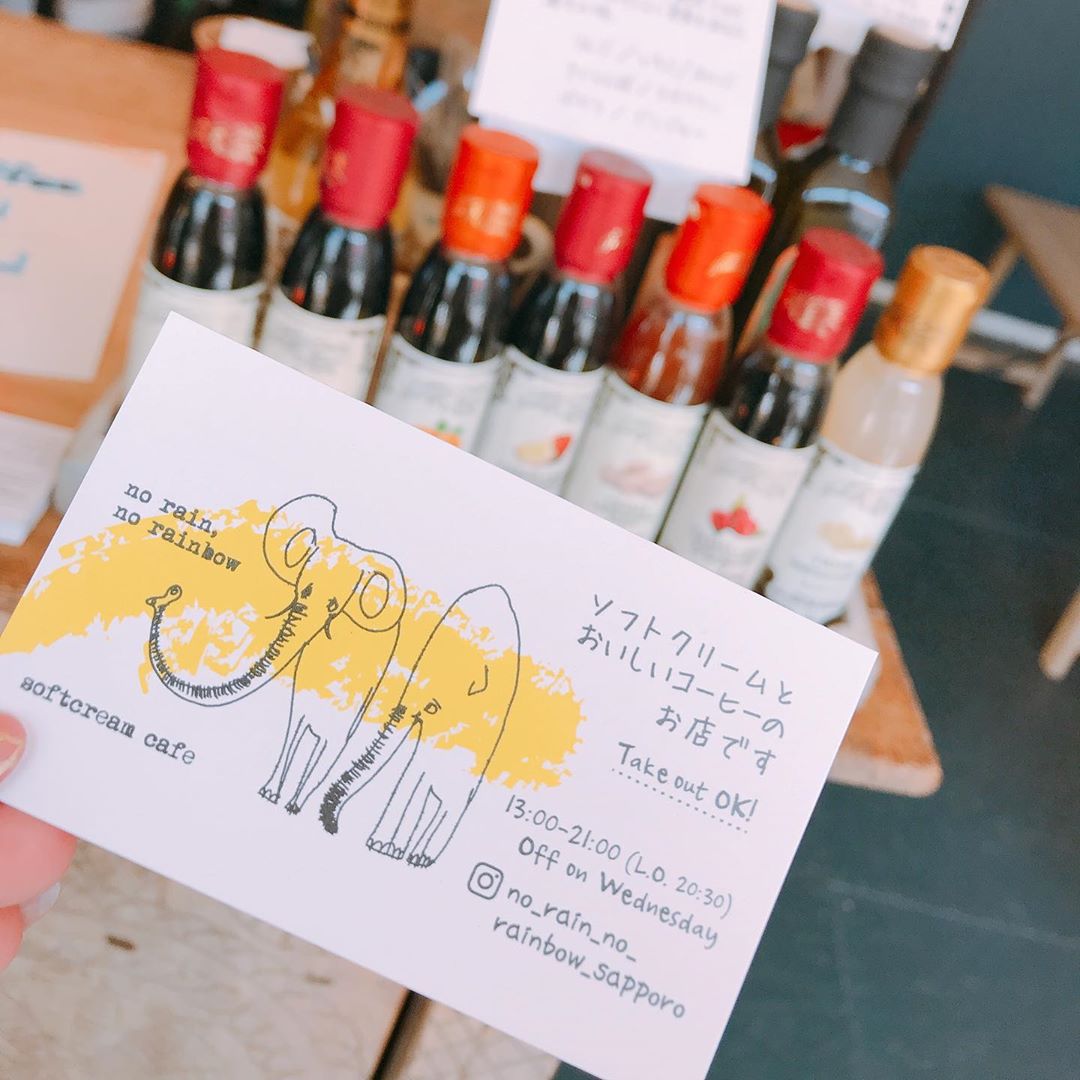 no rain,
no rainbow
softcream cafe
ソフトクリームと
おいしいコーヒーの
お店です
Take out OK!
13:00-21:00 (L.O. 20:30)
Off on Wednesday
no_rain_no_
rainbow_sapporo